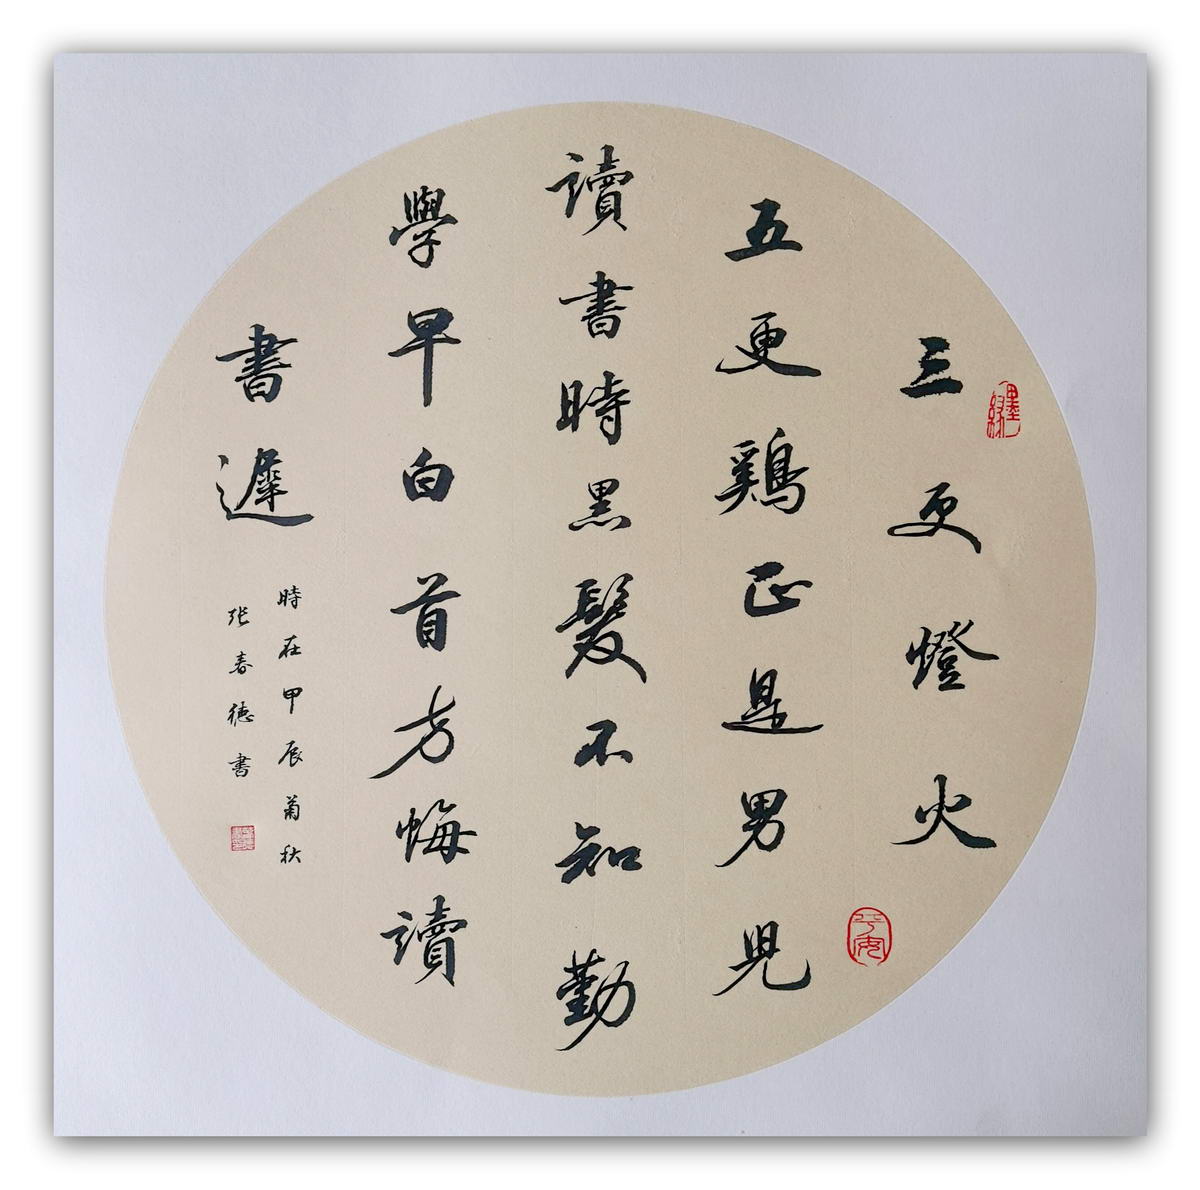 三更燈火
五更鷄正是男児
讀書時黒髮不知勤
學早白首方悔讀
書遲
時在甲辰菊秋
张春德書
平安